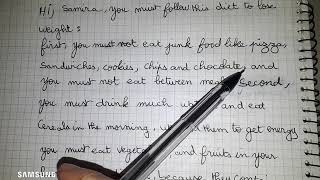 Hi, Samira, you must follow this diet to lose
weight:
first, you must not eat junk food like pizza,
Sandwches, cookies, chips and chocolate, and
you must not eat between meals Second,
you must drink much and eat
Cereals in the morning, them to get energy
you must eat and fruits in your
because they
SAMSUNG